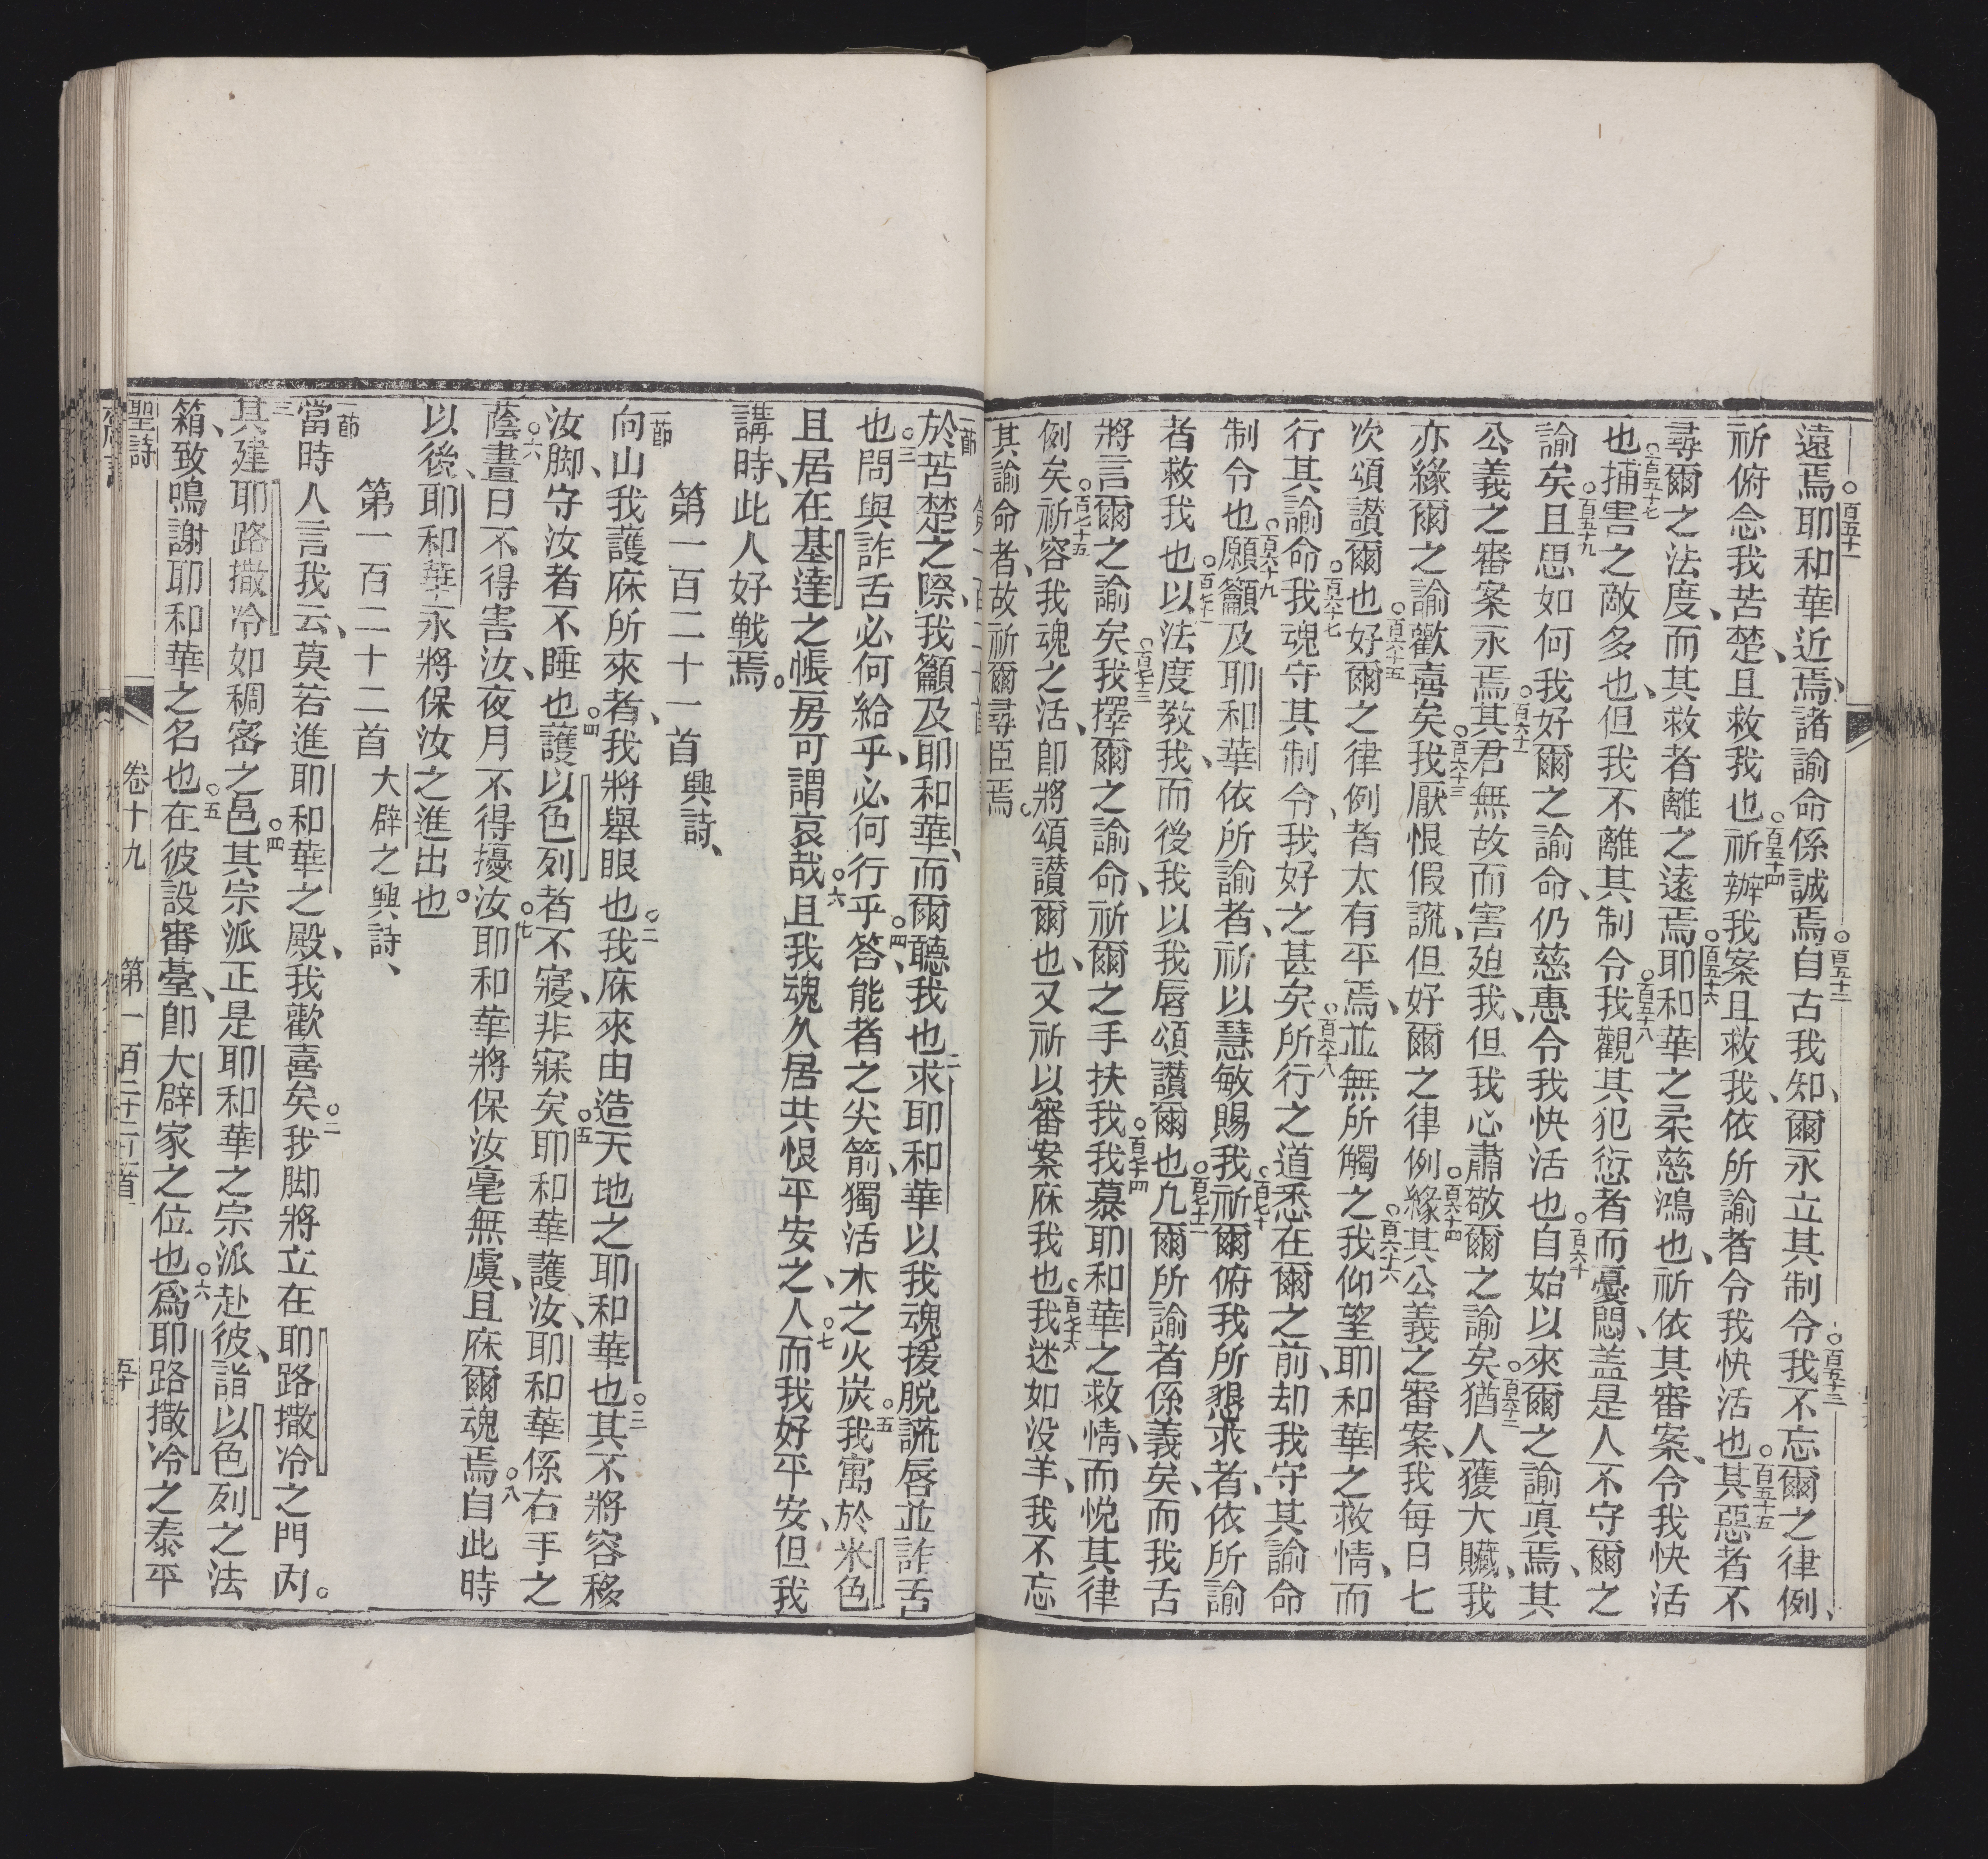 遠焉○百五十一耶和華近焉、諸諭命係誠焉○百五十二自古我知、爾永立其制令○百五十三我不忘爾之律例、
祈俯念我苦楚、且救我也○百五十四祈辦我案且救我、依所諭者、令我快活也○百五十五其惡者不
尋爾之法度、而其救者離之遠焉○百五十六耶和華之柔慈鴻也、祈依其審案、令我快活
也○百五十七捕害之敵多也、但我不離其制令○百五十八我觀其犯愆者而憂悶、盖是人不守爾之
諭矣○百五十九且思如何我好爾之諭命、仍慈惠令我快活也○百六十自始以來爾之諭真焉、其
公義之審案永焉○百六十一其君無故而害廹我、但我心肅敬爾之諭矣○百六十二猶人獲大贓、我
亦緣爾之諭歡喜矣○百六十三我厭恨假謊、但好爾之律例○百六十四緣其公義之審案、我每日七
次頌讃爾也○百六十五好爾之律例者太有平焉、並無所觸之○百六十六我仰望耶和華之救情、而
行其諭命○百六十七我魂守其制令、我好之甚矣○百六十八所行之道悉在爾之前、却我守其諭命
制令也○百六十九願籲及耶和華依所諭者、祈以慧敏賜我○百七十祈爾俯我所懇求者、依所諭
者救我也○百七十一以法度教我、而後我以我唇頌讃爾也○百七十二凢爾所諭者係義矣、而我舌
將言爾之諭矣○百七十三我擇爾之諭命、祈爾之手扶我○百七十四我慕耶和華之救情、而悅其律
例矣○百七十五祈容我魂之活、即將頌讃爾也、又祈以審案庥我也○百七十六我迷如没羊、我不忘
其諭命者、故祈爾尋臣焉。
第一百二十首
一節於苦楚之際、我籲及耶和華、而爾聽我也○二求耶和華以我魂援脫謊唇並詐舌
也○三問與詐舌必何給乎、必何行乎○四答能者之尖箭、獨活木之火炭○五我寓於米色
且居在基達之帳房可謂哀哉○六且我魂久居共恨平安之人、○七而我好平安、但我
講時、此人好戰焉。
第一百二十一首 興詩、
一節向山我護庥所來者、我將舉眼也○二我庥來由造天地之耶和華也○三其不將容移
汝脚、守汝者不睡也○四護以色列者不寢、非寐矣○五耶和華護汝、耶和華係右手之
蔭○六晝日不得害汝、夜月不得擾汝○七耶和華將保汝毫無虞、且庥爾魂焉○八自此時
以後、耶和華永將保汝之進出也。
第一百二十二首 大辟之興詩、
一節當時人言我云、莫若進耶和華之殿、我歡喜矣○二我脚將立在耶路撒冷之門內。
三其建耶路撒冷如稠密之邑○四其宗派正是耶和華之宗派赴彼、詣以色列之法
箱、致鳴謝耶和華之名也○五在彼設審臺、即大辟家之位也○六爲耶路撒冷之泰平
聖詩 卷十九 第一百二十二首 五